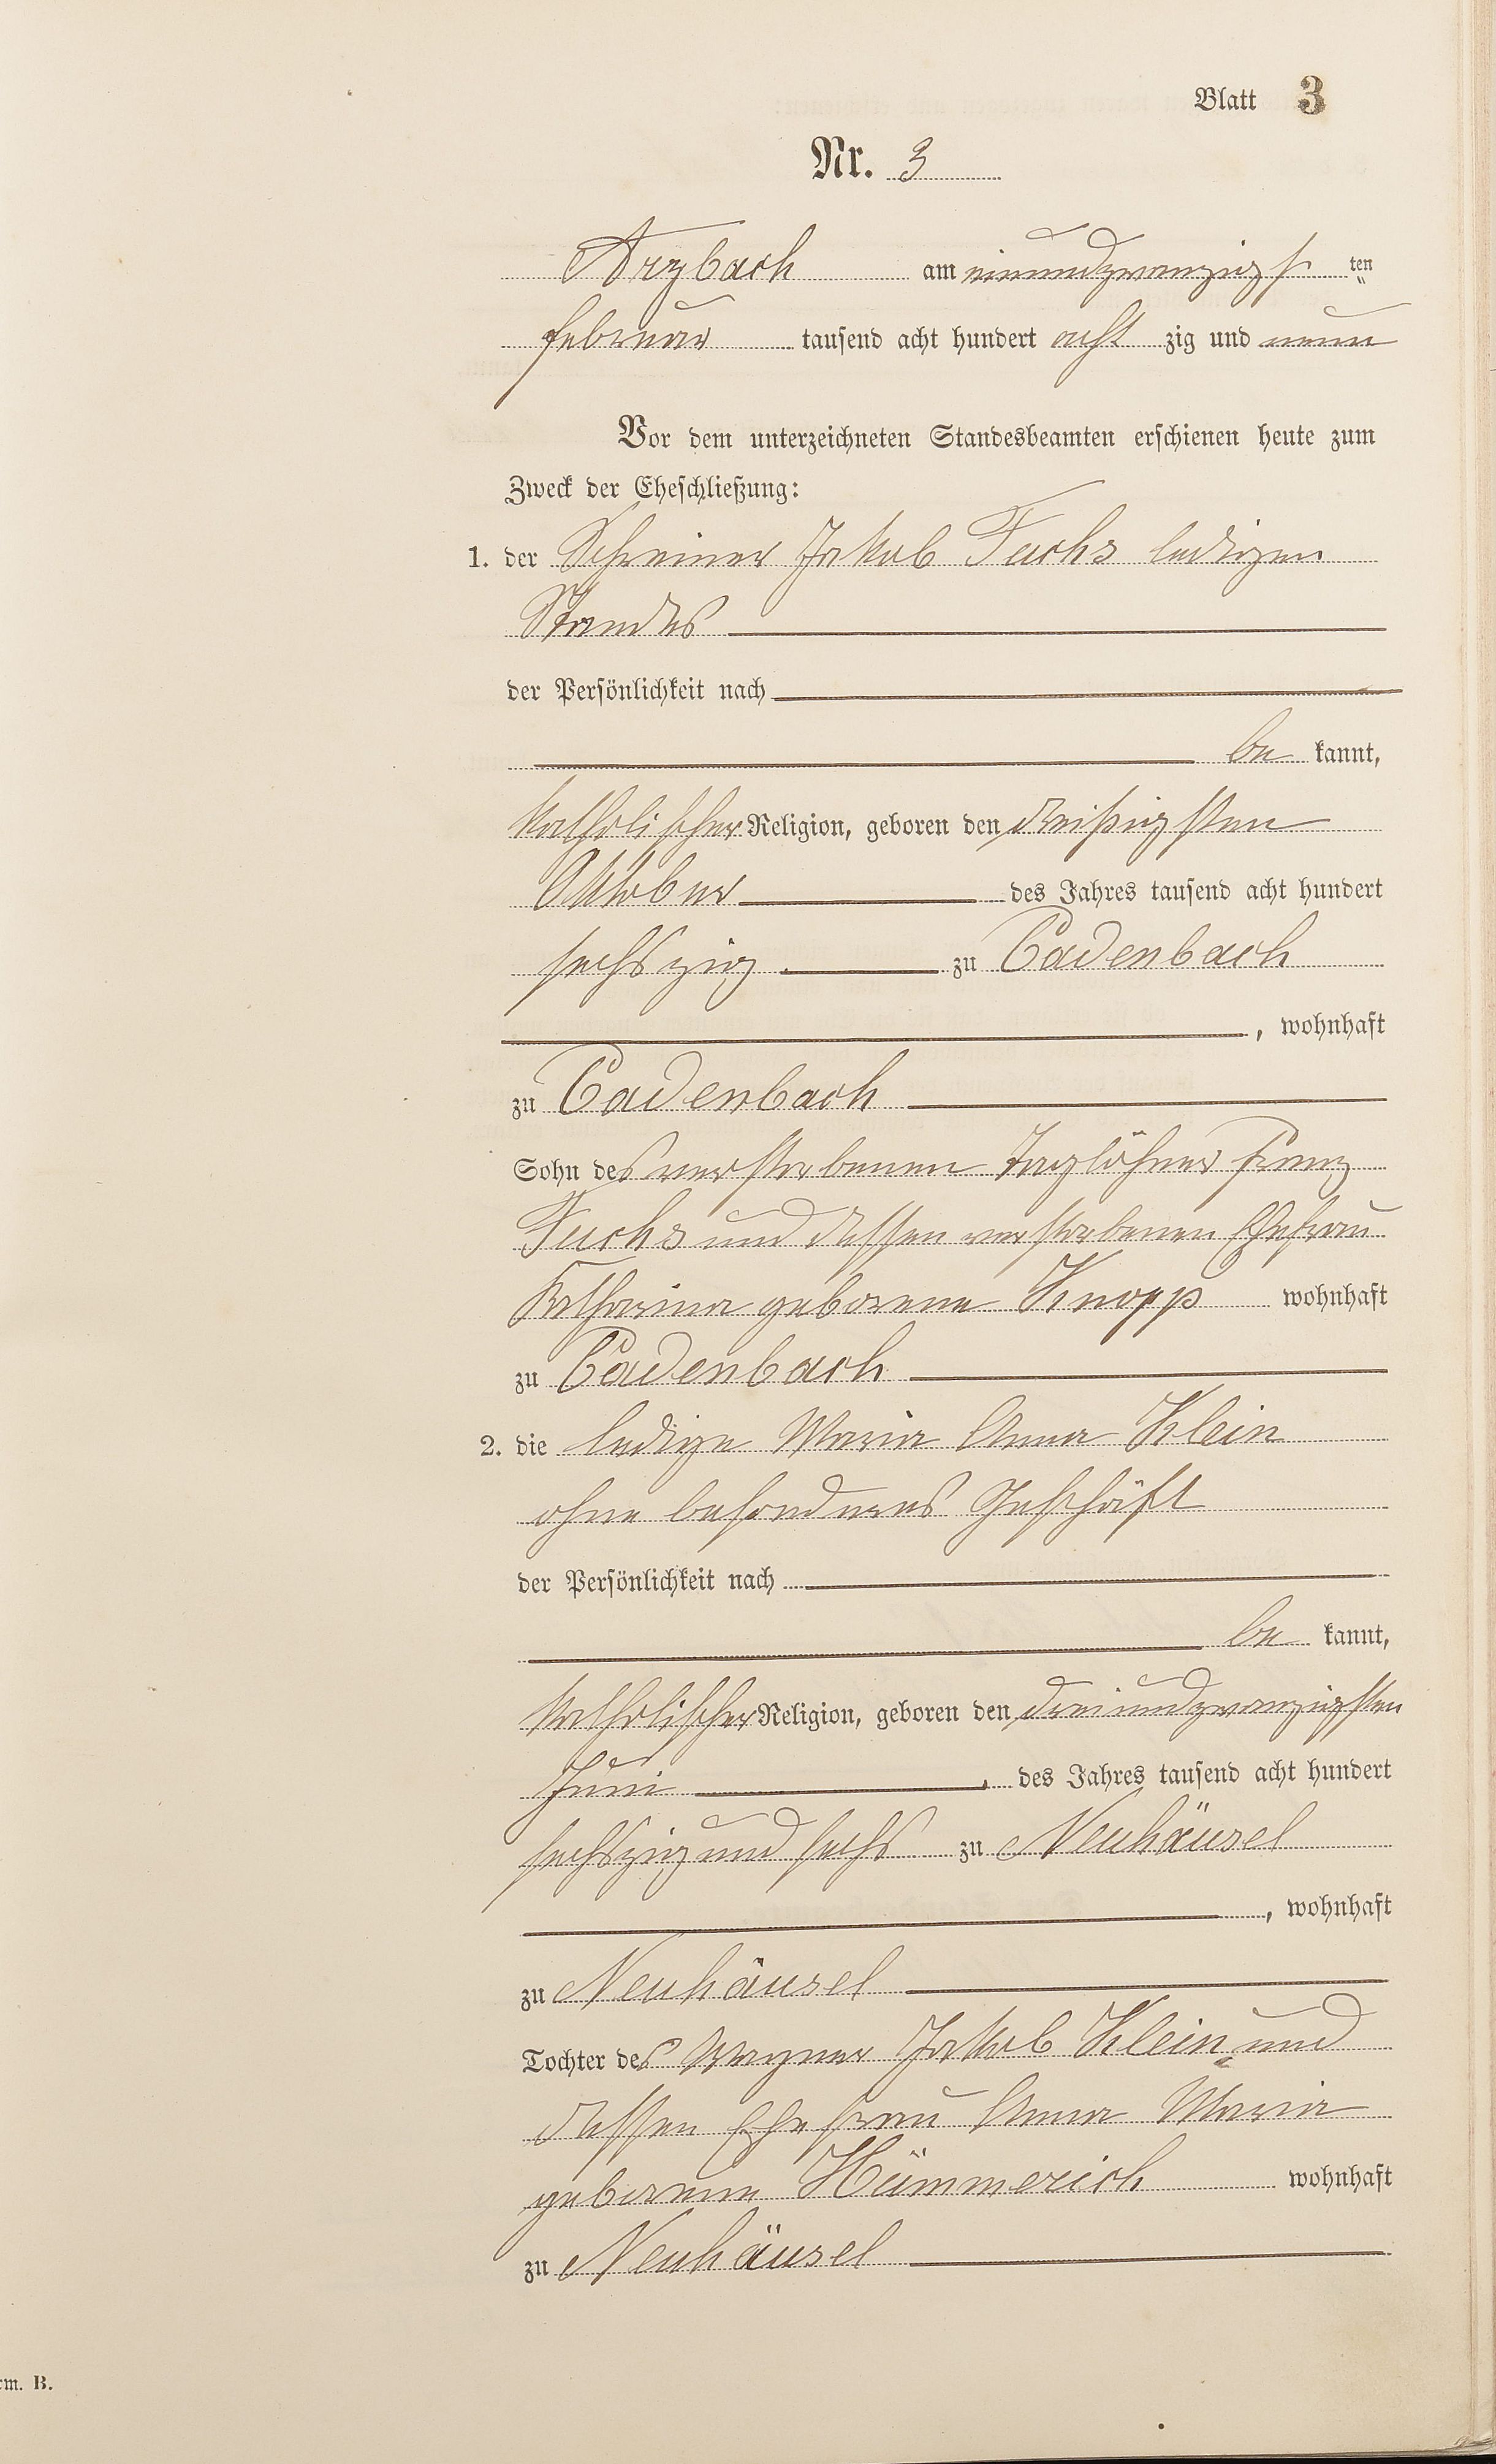 Blatt 3
Nr. 3
Arzbach am einundzwanzigs ten
Februar tausend acht hundert acht zig und neun
Vor dem unterzeichneten Standesbeamten erschienen heute zum
Zweck der Eheschließung:
1. der Schreiner Jakob Fuchs ledigen
Standes
der Persönlichkeit nach
be kannt,
katholischer Religion, geboren den dreißigsten
Oktober des Jahres tausend acht hundert
sechszig zu Cadenbach
, wohnhaft
zu Cadenbach
Sohn des verstorbenen Taglöhner Franz
Fuchs und dessen verstorbenen Ehefrau
Katharina geborene Knopp wohnhaft
zu Cadenbach
2. die ledige Maria Anna Klein
ohne besonderes Geschäft
der Persönlichkeit nach
be kannt,
katholischer Religion, geboren den dreiundzwanzigsten
Juni des Jahres tausend acht hundert
sechszig und sechs zu Neuhäusel
, wohnhaft
zu Neuhäusel
Tochter des Wagner Jakob Klein und
dessen Ehefrau Anna Maria
geborene Hümmerich wohnhaft
zu Neuhäusel
rm. B.